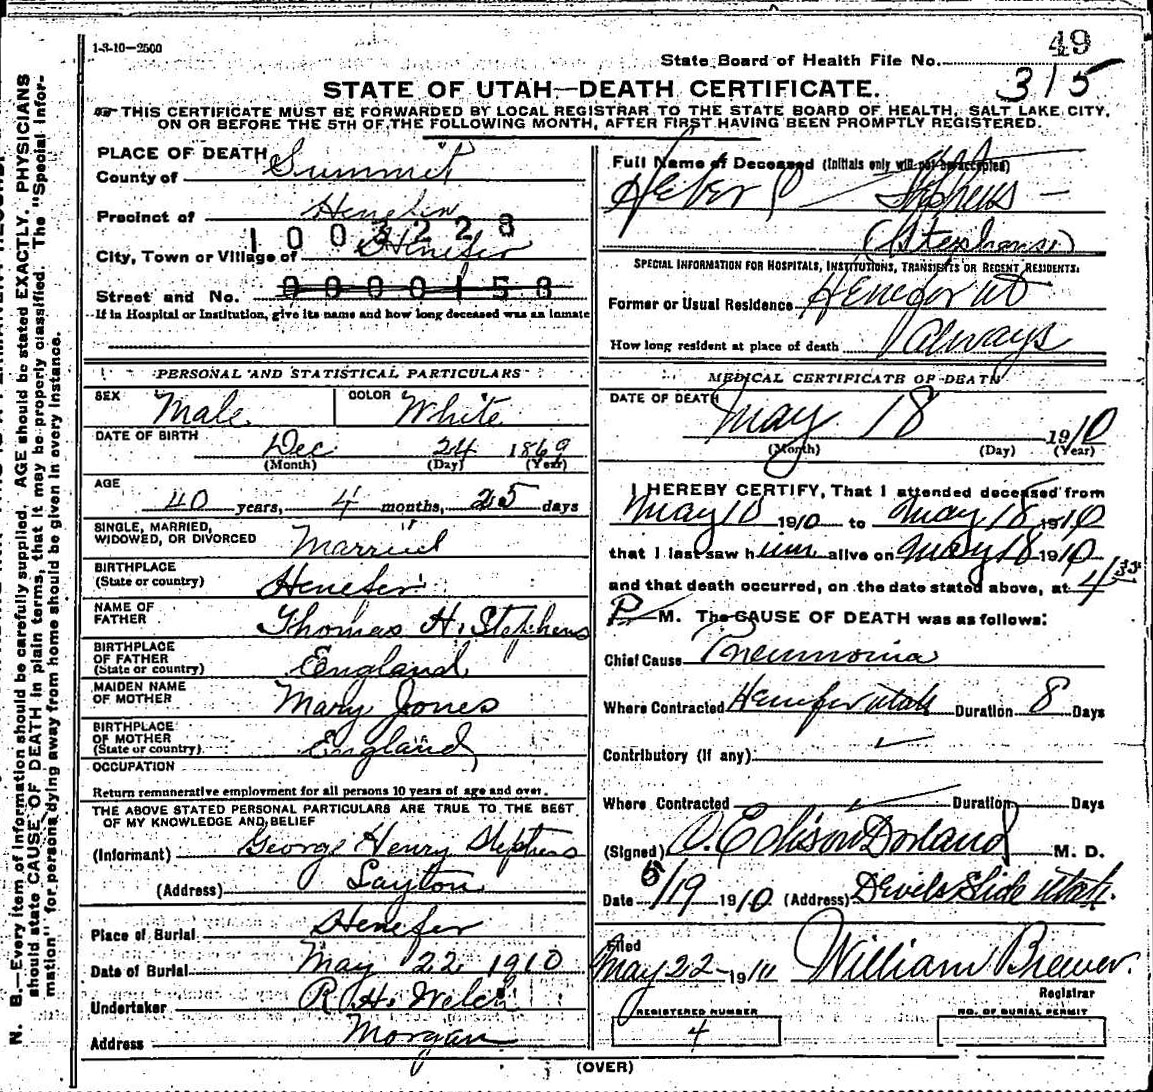 1-3-10-2500
49
State Board of Health File No.
315
STATE OF UTAH—DEATH CERTIFICATE.
THIS CERTIFICATE MUST BE FORWARDED BY LOCAL REGISTRAR TO THE STATE BOARD OF HEALTH, SALT LAKE CITY,
ON OR BEFORE THE 5TH OF THE FOLLOWING MONTH, AFTER FIRST HAVING BEEN PROMPTLY REGISTERED.
PLACE OF DEATH
County of Summit
Precinct of Henefer
1003228
City, Town or Village of Henefer
Street and No. 0000158
If in Hospital or Institution, give its name and how long deceased was an inmate
PERSONAL AND STATISTICAL PARTICULARS
SEX Male COLOR White
DATE OF BIRTH Dec 24 1869
(Month) (Day) (Year)
AGE
40 years, 4 months, 25 days
SINGLE, MARRIED,
WIDOWED, OR DIVORCED Married
BIRTHPLACE
(State or country) Henefer
NAME OF
FATHER Thomas H. Stephens
BIRTHPLACE
OF FATHER
(State or country) England
MAIDEN NAME
OF MOTHER Mary Jones
BIRTHPLACE
OF MOTHER
(State or country) England
OCCUPATION
Return remunerative employment for all persons 10 years of age and over.
THE ABOVE STATED PERSONAL PARTICULARS ARE TRUE TO THE BEST
OF MY KNOWLEDGE AND BELIEF
(Informant) George Henry Stephens
(Address) Layton
Place of Burial Henefer
Date of Burial May 22 1910
Undertaker R. H. Welch
Address Morgan
Full Name of Deceased (Initials only will not be accepted)
Heber P Stephens
(Stephens)
SPECIAL INFORMATION FOR HOSPITALS, INSTITUTIONS, TRANSIENTS OR RECENT RESIDENTS:
Former or Usual Residence Henefer Ut
How long resident at place of death Always
MEDICAL CERTIFICATE OF DEATH
DATE OF DEATH
May 18 1910
(Month) (Day) (Year)
I HEREBY CERTIFY, That I attended deceased from
May 10 1910 to May 18, 1910
that I last saw him alive on May 18 1910
and that death occurred, on the date stated above, at 4
P M. The CAUSE OF DEATH was as follows:
Chief Cause Pneumonia
Where Contracted Henefer Utah Duration 8 Days
Contributory (if any)
Where Contracted Duration Days
(Signed) O. Edison Dorland M. D.
Date 5/19 1910 (Address) Devels Slide Utah.
Filed
May 22 1910 William Brewer.
Registrar
REGISTERED NUMBER
4
NO. OF BURIAL PERMIT
(OVER)
N. B.—Every item of information should be carefully supplied. AGE should be stated EXACTLY. PHYSICIANS
should state CAUSE OF DEATH in plain terms, that it may be properly classified. The "Special Infor-
mation" for persons dying away from home should be given in every instance.